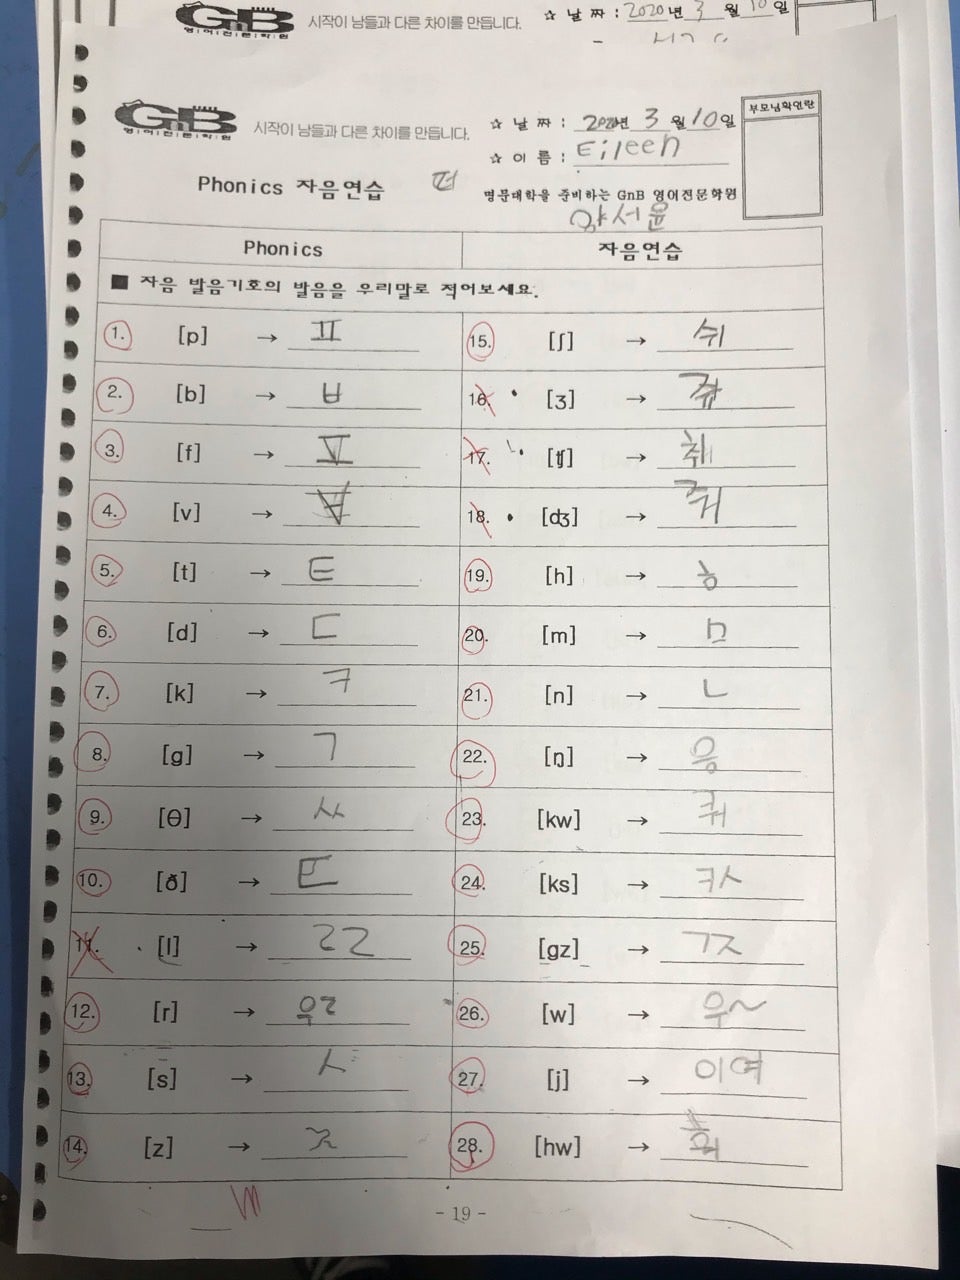 GnB
영어전문학원
시작이 남들과 다른 차이를 만듭니다.
☆ 날 짜 : 2020년 3 월 10 일
GnB
영어전문학원
시작이 남들과 다른 차이를 만듭니다.
☆ 날 짜 : 2020년 3 월 10일
부모님확인란
☆ 이 름 : Eileen
Phonics 자음연습
명문대학을 준비하는 GnB 영어전문학원
서윤
Phonics 자음연습
■ 자음 발음기호의 발음을 우리말로 적어보세요.
1. [p] → ㅍ 15. [ʃ] → 쉬
2. [b] → ㅂ 16. [ʒ] →
3. [f] → 17. [ʧ] → 취
4. [v] → 18. [ʤ] → 쥐
5. [t] → ㅌ 19. [h] → ㅎ
6. [d] → ㄷ 20. [m] → ㅁ
7. [k] → ㅋ 21. [n] → ㄴ
8. [g] → ㄱ 22. [ŋ] → 응
9. [θ] → ㅆ 23. [kw] → 쿼
10. [ð] → 24. [ks] → ㅋㅅ
11. [l] → ㄹㄹ 25. [gz] → ㄱㅈ
12. [r] → 우ㄹ 26. [w] → 우~
13. [s] → ㅅ 27. [j] → 이여
14. [z] → ㅈ 28. [hw] → 훠
- 19 -